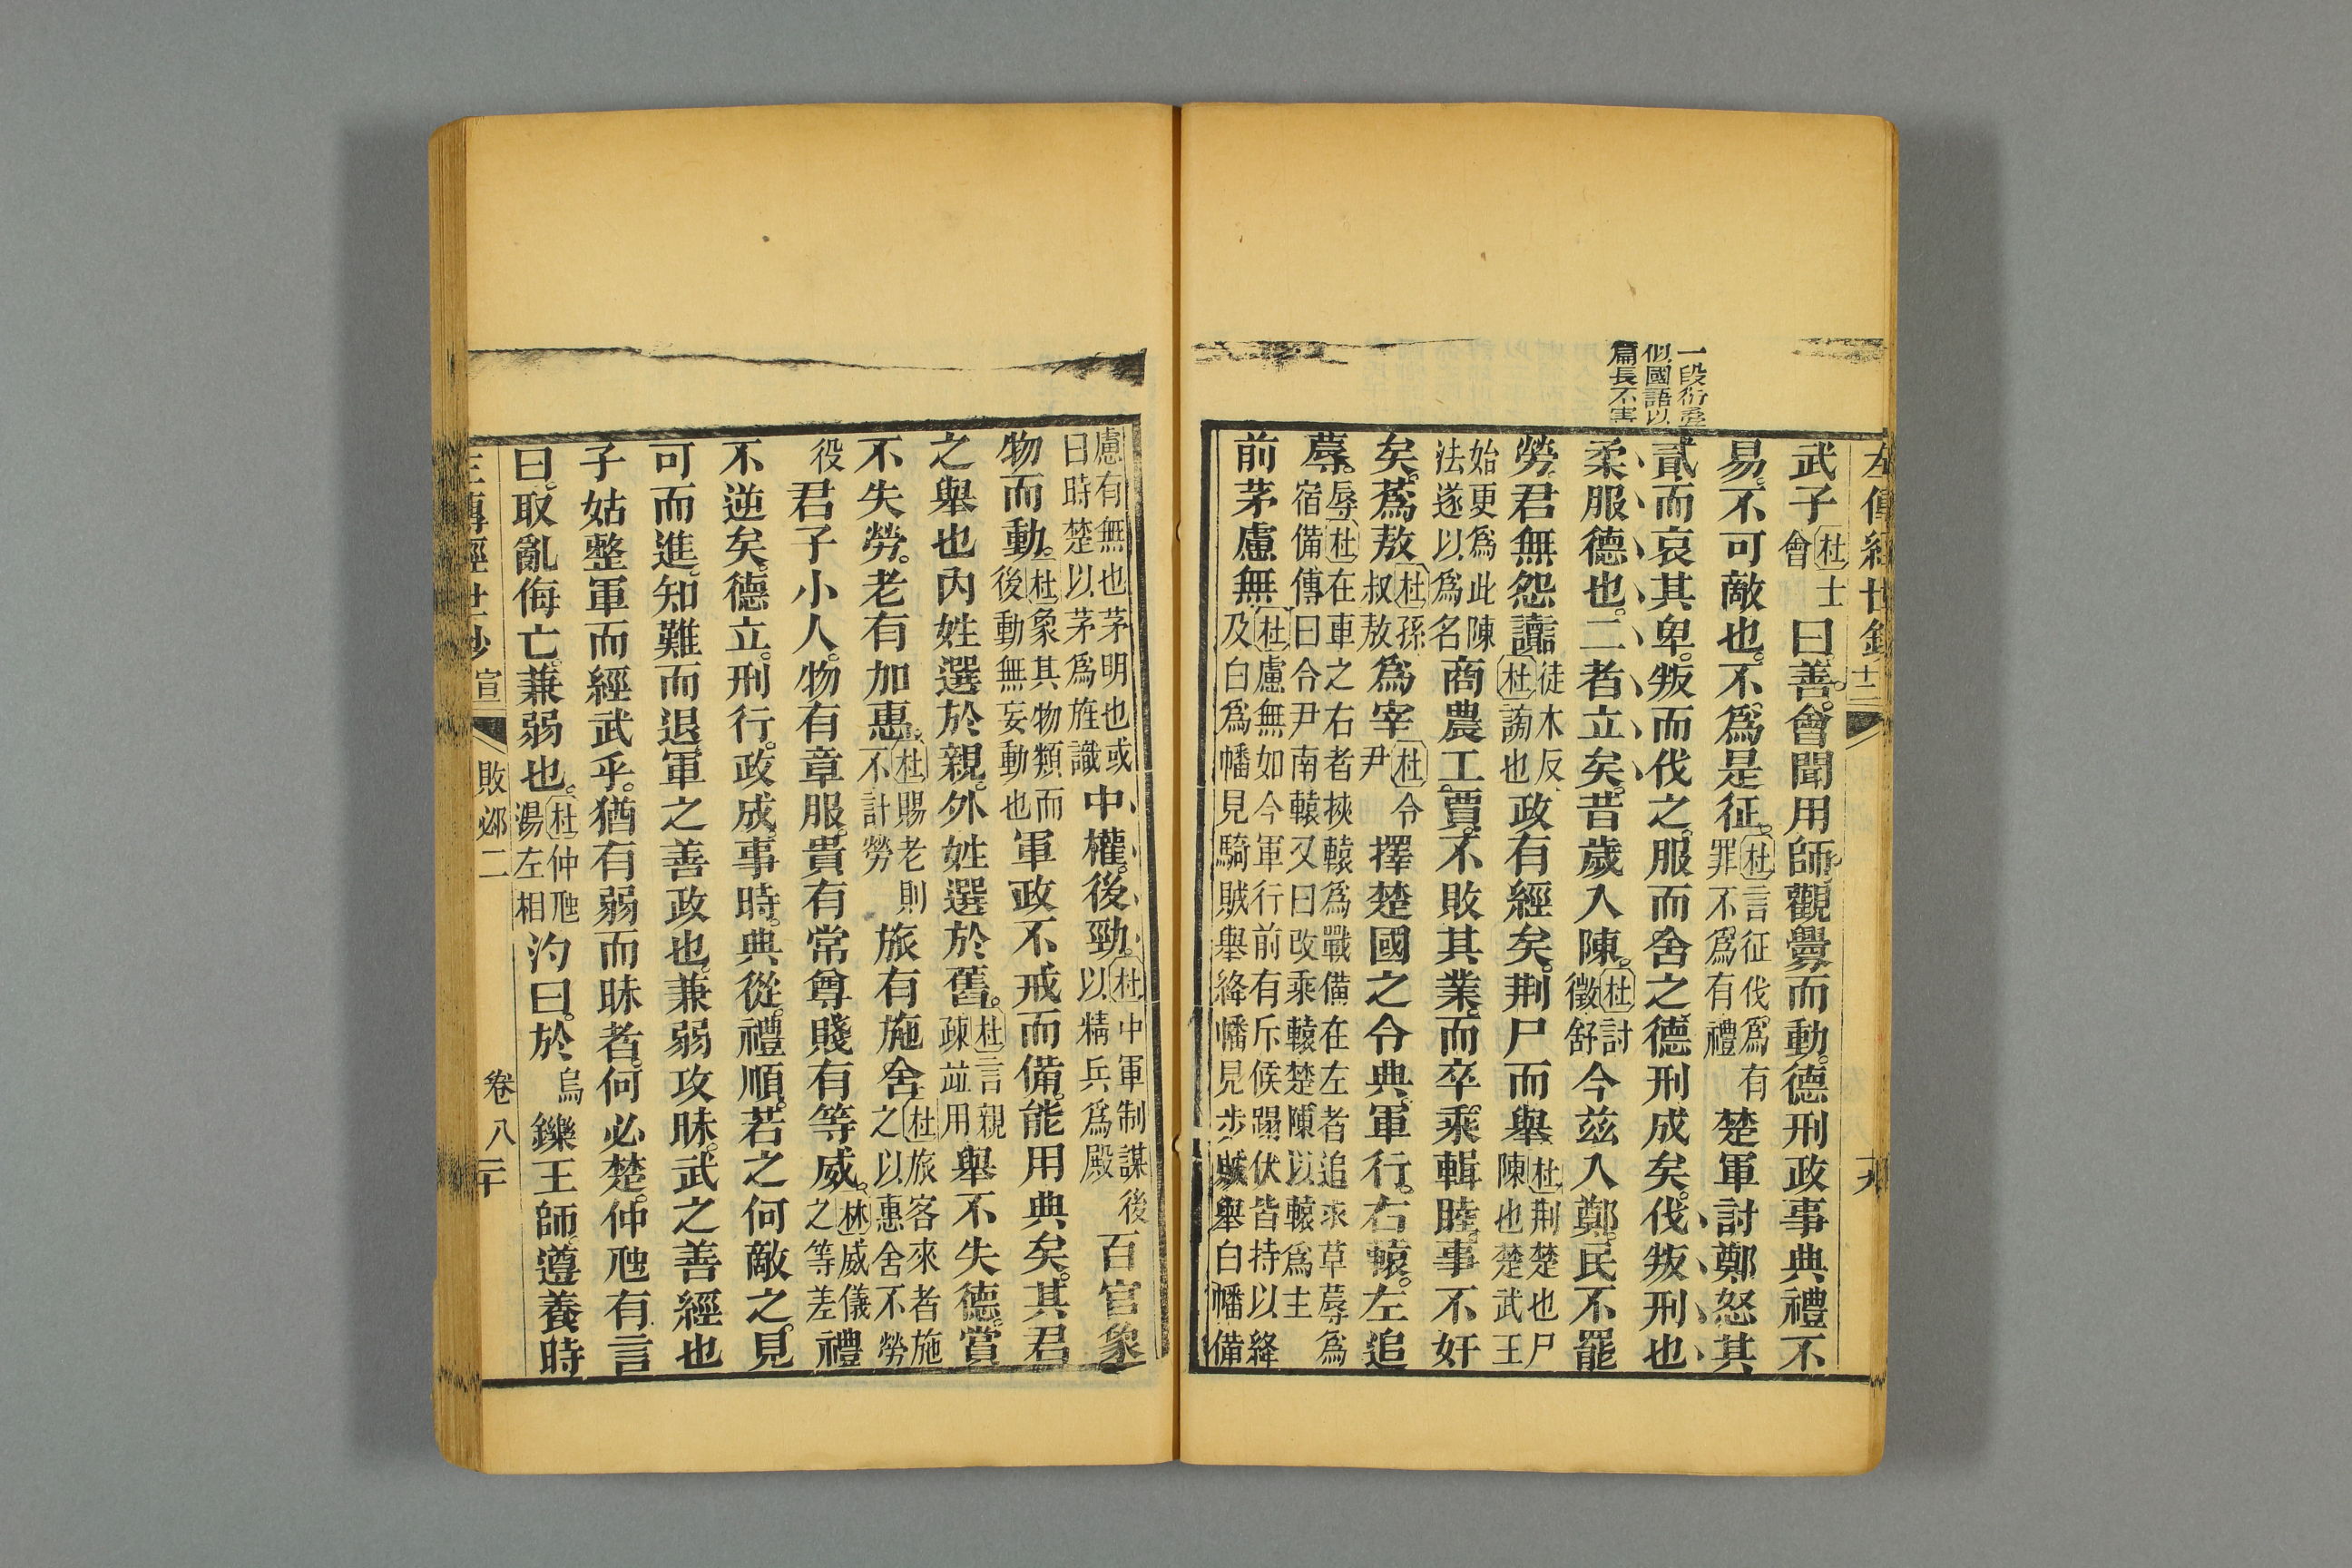 一段衍疊
似國語以
篇長不害
左傳經世鈔 十二
武子杜士會曰善會聞用師觀釁而動德刑政事典禮不
易不可敵也不為是征杜言征伐為有罪不為有禮楚軍討鄭怒其
貳而哀其卑叛而伐之服而舍之德刑成矣伐叛刑也
柔服德也二者立矣昔歲入陳杜討徵舒今茲入鄭民不罷
勞君無怨讟徒木反杜謗也政有經矣荆尸而舉杜荆楚也尸陳也楚武王
始更為此陳法遂以為名商農工賈不敗其業而卒乘輯睦事不奸
矣蔿敖杜孫叔敖為宰杜令尹擇楚國之令典軍行右轅左追
蓐辱杜在車之右者挾轅為戰備在左者追求草蓐為宿備傳曰令尹南轅又曰改乘轅楚陳以轅為主
前茅慮無杜慮無如今軍行前有斥候蹋伏皆持以絳及白為幡見騎賊舉絳幡見步賊舉白幡備
慮有無也茅明也或曰時楚以茅為旌識中權後勁杜中軍制謀後以精兵為殿百官象
物而動杜象其物類而後動無妄動也軍政不戒而備能用典矣其君
之舉也內姓選於親外姓選於舊杜言親疎竝用舉不失德賞
不失勞老有加惠杜賜老則不計勞旅有施舍杜旅客來者施之以惠舍不勞
役君子小人物有章服貴有常尊賤有等威林威儀之等差禮
不逆矣德立刑行政成事時典從禮順若之何敵之見
可而進知難而退軍之善政也兼弱攻昧武之善經也
子姑整軍而經武乎猶有弱而昧者何必楚仲虺有言
曰取亂侮亡兼弱也杜仲虺湯左相汋曰於烏鑠王師遵養時
左傳經世鈔 宣 敗邲二 卷八 二十